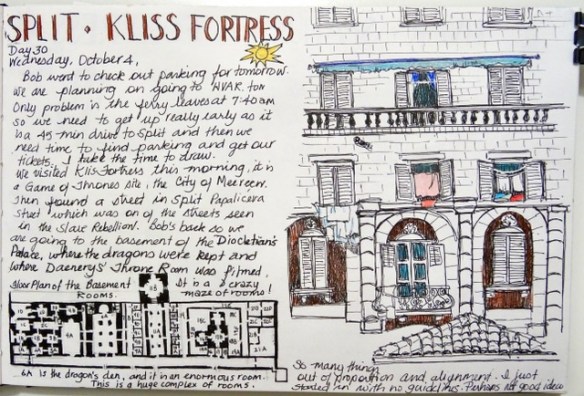 SPLIT · KLISS FORTRESS
Day 30
Wednesday, October 4,
Bob went to check out parking for tomorrow.
We are planning on going to HVAR. too
Only problem is the ferry leaves at 7:40am
so we need to get up really early as it
is a 45 min drive to Split and then we
need time to find parking and get our
tickets. I take the time to draw.
We visited Klis Fortress this morning, it is
a Game of Thrones site, the City of Meereen.
Then found a street in Split Papalicera
Street which was on of the streets seen
in the Slave Rebellion. Bob's back so we
are going to the basement of the Diocletian's
Palace, where the dragons were kept and
where Daenerys' Throne Room was filmed.
It is a crazy
maze of rooms!
Floor Plan of the Basement
ROOMS.
6A is the dragon's den, and it is an enormous room.
This is a huge complex of rooms.
So many things
out of proportion and alignment. I just
started in with no guidelines. Perhaps not good idea